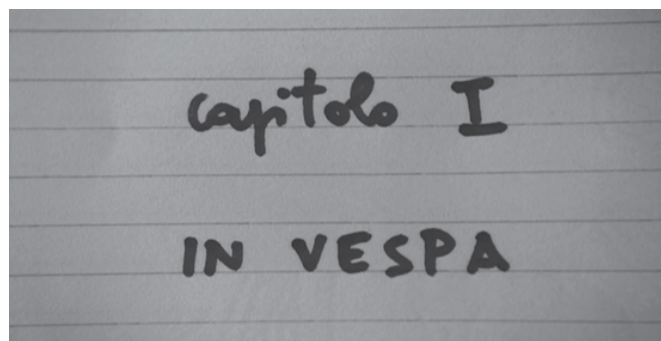 capitolo I
IN VESPA